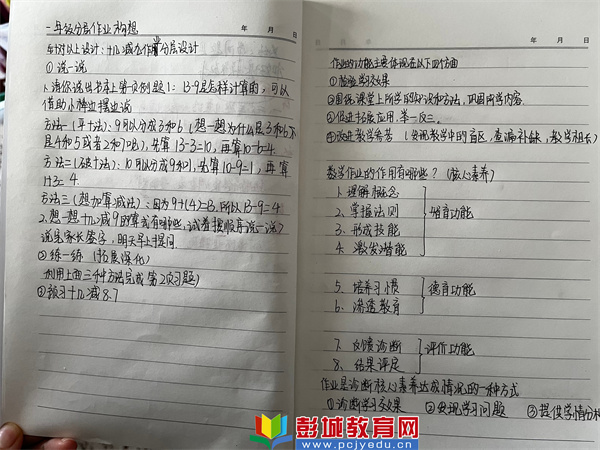 一年级分层作业构想
年 月 日
针对以上设计:十几减九作业分层设计
①说一说
1、请你说出书本上第页例题1:13-9是怎样计算的,可以
借助小棒边摆边说
方法一(平十法):9可以分成3和6(想一想为什么是3和6不
是4和5或者2和7呢),先算13-3=10,再算10-6=4
方法二(破十法):10可以分成9和1,先算10-9=1,再算
1+3=4
方法三(想加算减法):因为9+(4)=13,所以13-9=4
2.想一想十几减9的算式有哪些,试着按顺序说一说
说完家长签字,明天早上提问
②练一练(拓展深化)
利用上面三种方法完成第2页习题)
③预习十几减8.7
年 月 日
作业的功能主要体现在以下四方面
①检验学习效果
②围绕课堂上所学的知识和方法,巩固所学内容.
③促进书本应用,举一反三.
④改进教学参考(发现教学中的盲区,查漏补缺,教学相长)
数学作业的作用有哪些?(核心素养)
1、理解概念
2、掌握法则
3、形成技能
4、激发潜能
增育功能
5、培养习惯
6、渗透教育
德育功能
7、反馈诊断
8、结果评定
评价功能
作业是诊断核心素养达成情况的一种方式
①诊断学习效果 ②发现学习问题 ③提供学情分析
彭城教育网
www.pcjyedu.com